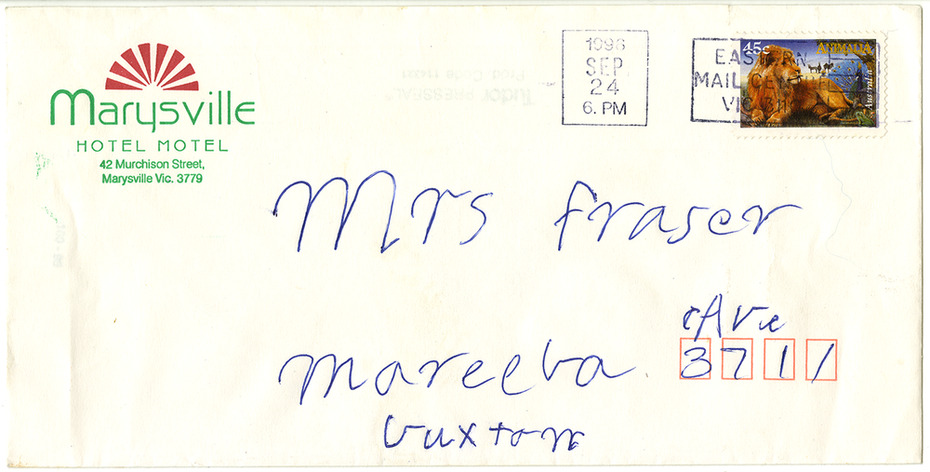 Marysville
HOTEL MOTEL
42 Murchison Street,
Marysville Vic. 3779
1998
SEP
24
6. PM
EASTERN
MAIL
VIC
45c
ANIMALIA
Australia
Mrs Fraser
Mareeba Ave
3711
Buxton
Tudor PRESSEAL
Prod. Code